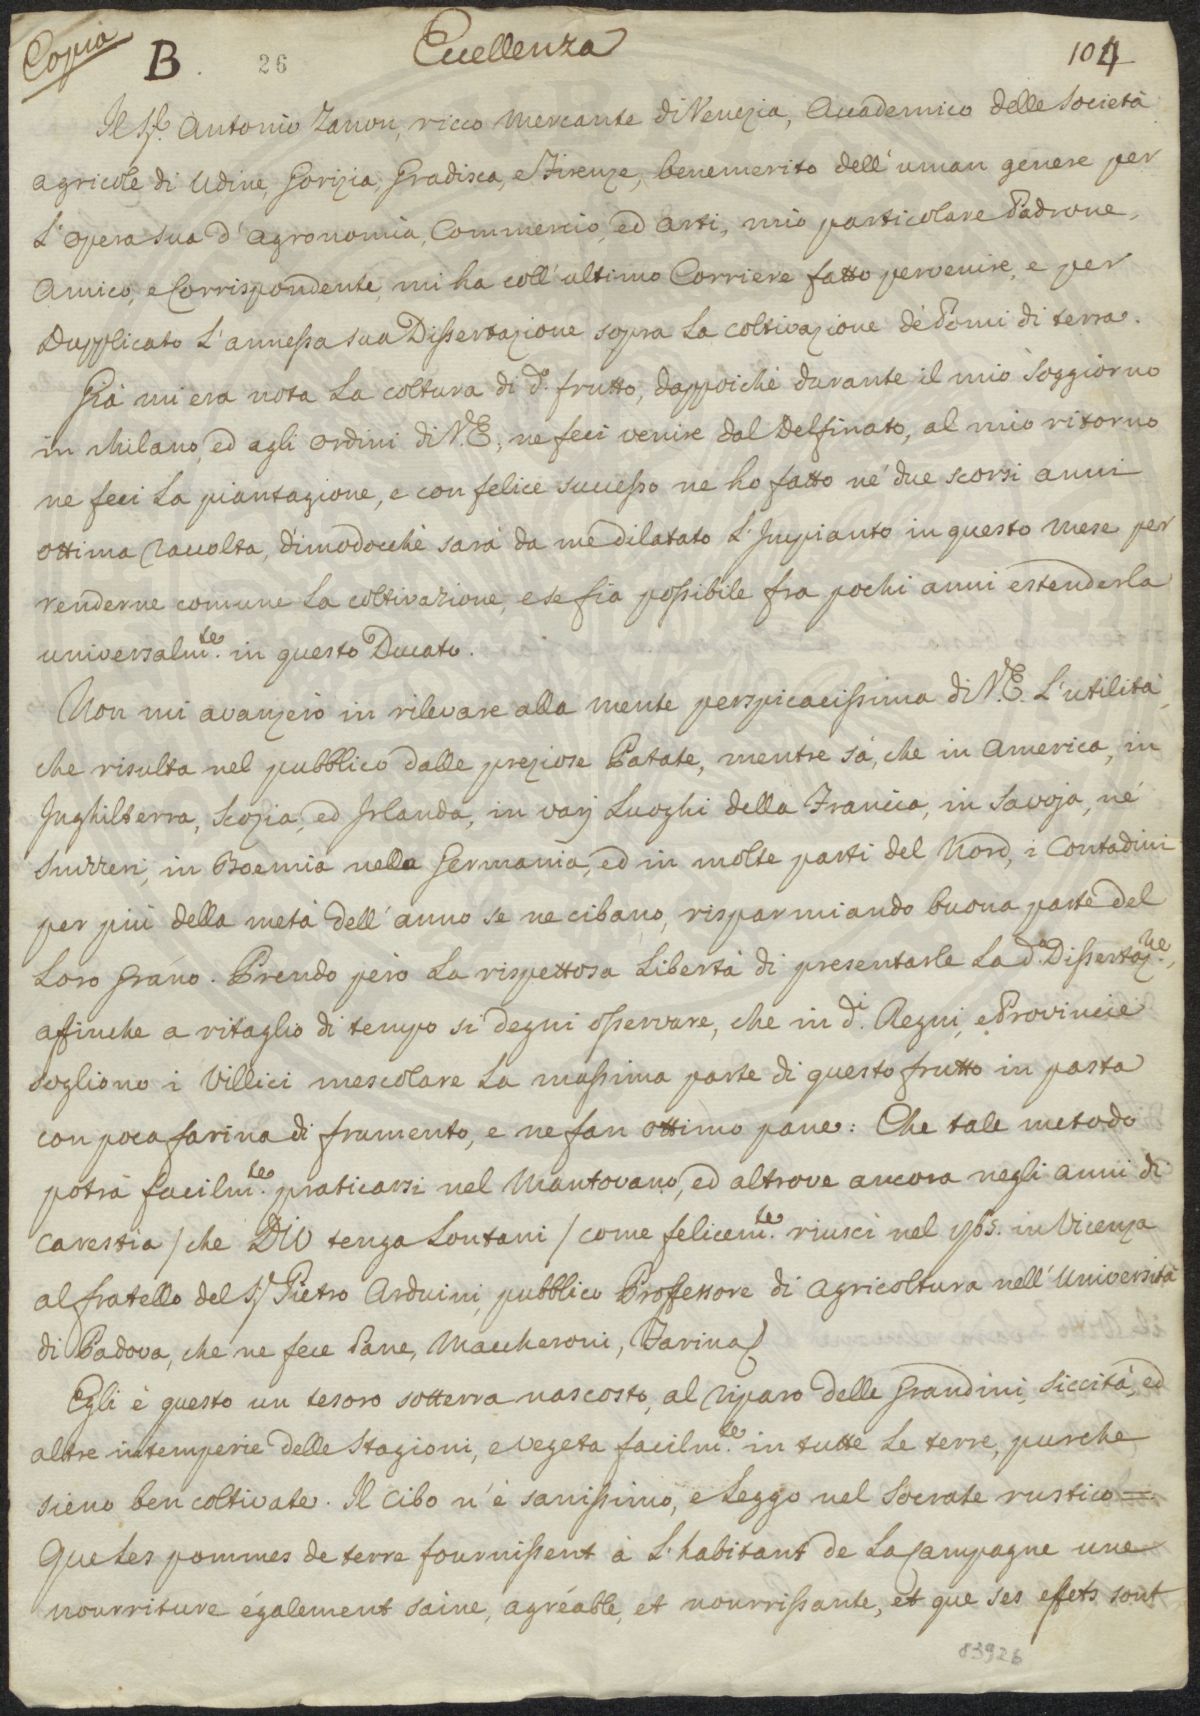 Copia
B. 26 Eccellenza 104
Il Sr. Antonio Zanon, ricco Mercante di Venezia, Accademico delle Società
agricole di Udine, Gorizia, Gradisca, e Firenze, benemerito dell'uman genere per
L'opera sua d'agronomia, Commercio, ed arti, mio particolare Padrone,
Amico, e Corrispondente, mi ha coll'ultimo Corriere fatto pervenire, e per
Dupplicato L'annessa sua Dissertazione sopra La coltivazione de' Pomi di terra.
Già mi era nota La coltura di do. frutto, dappoichè durante il mio Soggiorno
in Milano, ed agli ordini di V.E., ne feci venire dal Delfinato, al mio ritorno
ne feci La piantagione, e con felice successo ne ho fatto ne' due scorsi anni
ottima raccolta, dimodocchè sarà da me dilatato L'Impianto in questo Mese per
renderne comune La coltivazione, e se fia possibile fra pochi anni estenderla
universalmte. in questo Ducato.
Non mi avanzerò in rilevare alla mente perspicacissima di V.E. L'utilità,
che risulta nel pubblico dalle preziose Patate, mentre sà, che in America, in
Inghilterra, Scozia, ed Irlanda, in varj Luoghi della Francia, in Savoja, né
Suizzeri, in Boemia nella Germania, ed in molte parti del Nord, i Contadini
per più della metà dell'anno se ne cibano, risparmiando buona parte del
Loro grano. Prendo però La rispettosa Libertà di presentarle La da. Dissertazne.,
affinche a ritaglio di tempo si degni osservare, che in di. Regni, e Provincie
sogliono i Villici mescolare La massima parte di questo frutto in pasta
con poca farina di frumento, e ne fan ottimo pane: Che tale metodo
potrà facilmte. praticarsi nel Mantovano, ed altrove ancora negli anni di
carestia / che DIO tenga Lontani / come felicemte. riuscì nel 1765. in Vicenza
al fratello del Sr. Pietro Arduini, pubblico Professore di agricoltura nell'Università
di Padova, che ne fece Pane, Maccheroni, Farina
Egli è questo un tesoro sotterra nascosto, al riparo delle Grandini, siccità, ed
altre intemperie delle Stagioni, e vegeta facilmte. in tutte Le terre, purche
sieno ben coltivate. Il Cibo n'è sanissimo, e Leggo nel Socrate rustico =
Que Les pommes de terre fournissent à L'habitant de La Campagne une
nourriture également saine, agréable, et nourrissante, et que ses effets sont
83926